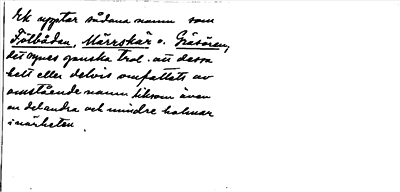 Ek upptar sådana namn som
Fjölbådan, Märrskär o. Gåsören,
det synes ganska trol. att dessa
helt eller delvis omfattats av
omstående namn liksom även
en del andra och mindre holmar
i närheten.